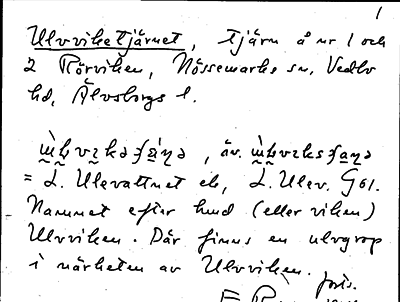 1
Ulvviketjärnet, tjärn å nr 1 och
2 Rörviken, Nössemarks sn, Vedbo
hd, Älvsborgs l.
, äv.
= L. Ulevattnet el., L. Ulev. G61.
Namnet efter hmd (eller viken)
Ulvviken. Där finns en ulvgrop
i närheten av Ulvviken.